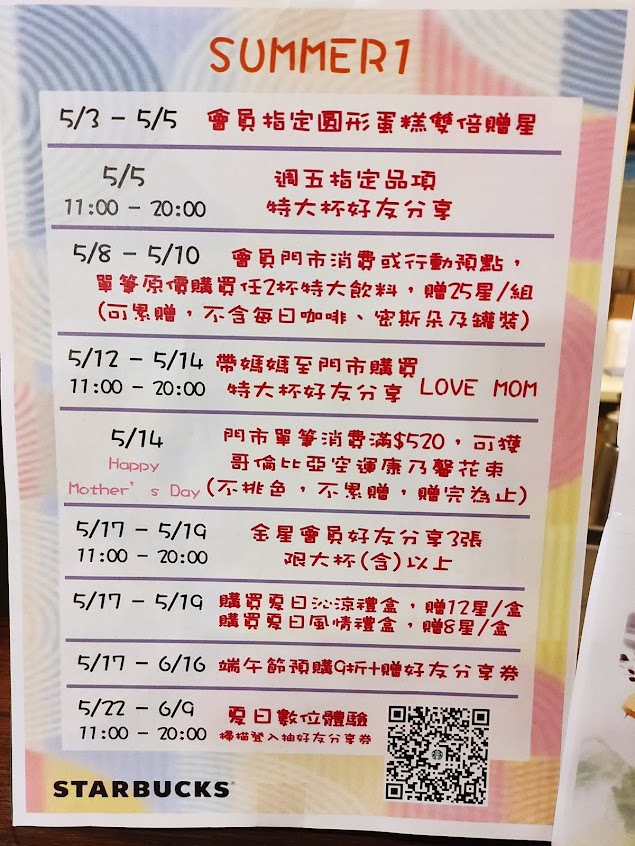 SUMMER1
5/3 - 5/5 會員指定圓形蛋糕雙倍贈星
5/5 週五指定品項
11:00 - 20:00 特大杯好友分享
5/8 - 5/10 會員門市消費或行動預點，
單筆原價購買任2杯特大飲料，贈25星/組
(可累贈，不含每日咖啡、密斯朵及罐裝)
5/12 - 5/14 帶媽媽至門市購買
11:00 - 20:00 特大杯好友分享 LOVE MOM
5/14 門市單筆消費滿$520，可獲
Happy 哥倫比亞空運康乃馨花束
Mother's Day (不挑色，不累贈，贈完為止)
5/17 - 5/19 金星會員好友分享3張
11:00 - 20:00 限大杯(含)以上
5/17 - 5/19 購買夏日沁涼禮盒，贈12星/盒
購買夏日風情禮盒，贈8星/盒
5/17 - 6/16 端午節預購9折+贈好友分享券
5/22 - 6/9 夏日數位體驗
11:00 - 20:00 掃描登入抽好友分享券
STARBUCKS